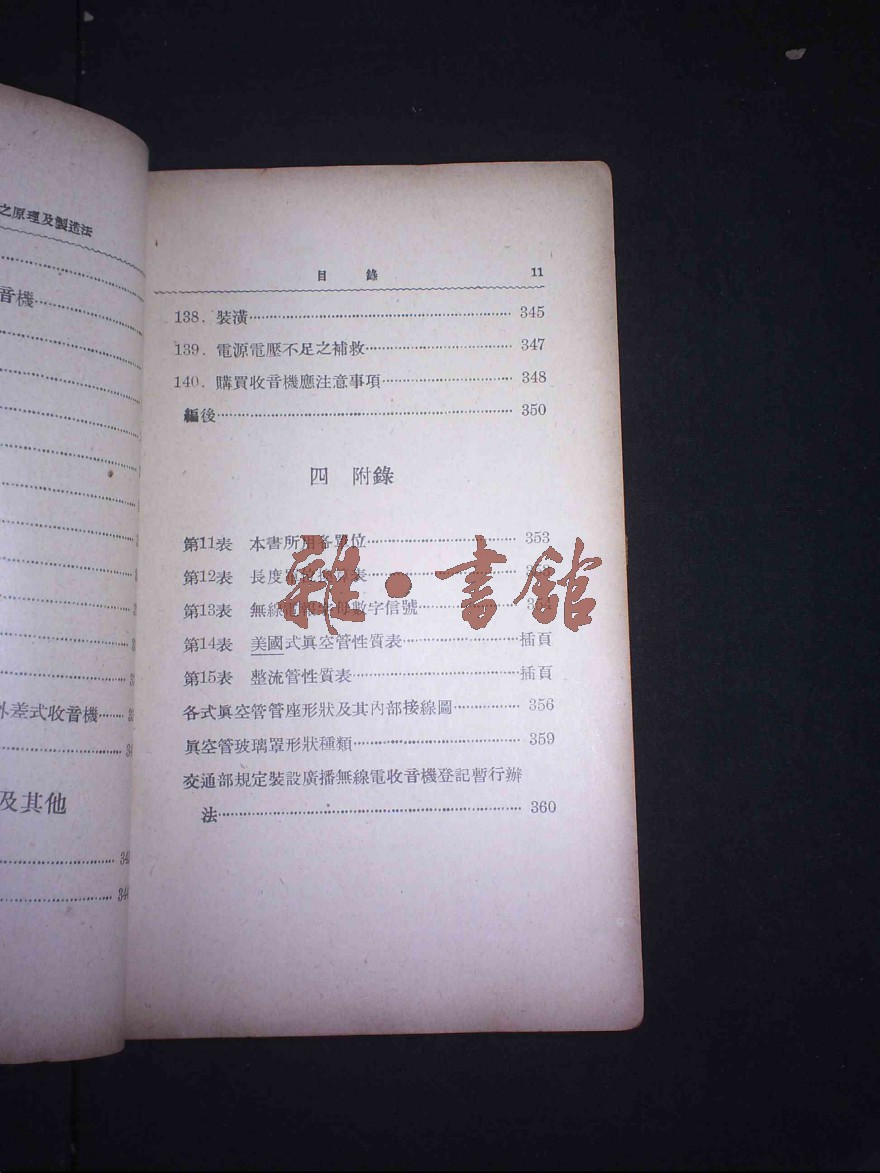 之原理及製造法
音機
外差式收音機
及其他
目 錄 11
138. 裝潢 345
139. 電源電壓不足之補救 347
140. 購買收音機應注意事項 348
編後 350
四 附錄
第11表 本書所用各單位 353
第12表 長度單位 表
第13表 無線電報字母數字信號
第14表 美國式眞空管性質表 插頁
第15表 整流管性質表 插頁
各式眞空管管座形狀及其內部接線圖 356
眞空管玻璃罩形狀種類 359
交通部規定裝設廣播無線電收音機登記暫行辦
法 360
雜·書館